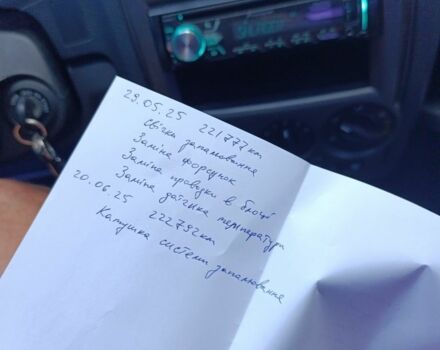 29.05.25 221777км
свічки запалювання
Заміна форсунок
Заміна проводки в блоці
Заміна датчика температури
20.06.25 222792км
Катушка системи запалювання